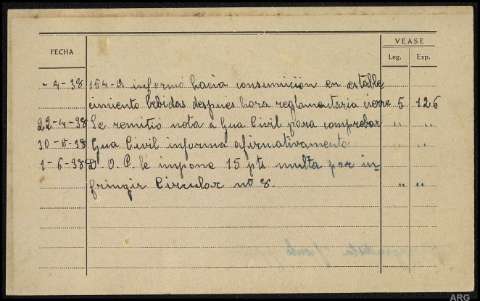 FECHA
VEASE
Leg. Exp.
- 4-38 154-A informó hacia consumición en estable
cimiento bebidas despues hora reglamentaria cierre 5 126
22-4-38 Se remitió nota a Gua Civil para comprobar " "
30-5-38 Gua Civil informa afirmativamente
1-6-38 D. O. P. le impone 15 pts multa por in=
fringir Circular nº 8. " "
ARG